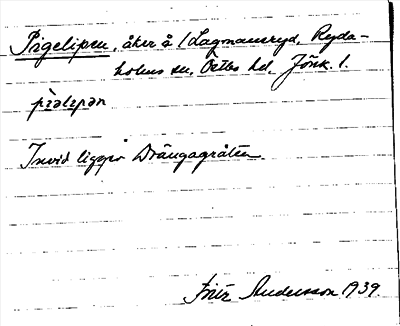 Pigelipen, åker å 1 Lagmansryd, Ryda-
holms sn, Östbo hd. Jönk. l.
pìəlıpən
Invid ligger Drängagråten.
Fritz Andersson 1939